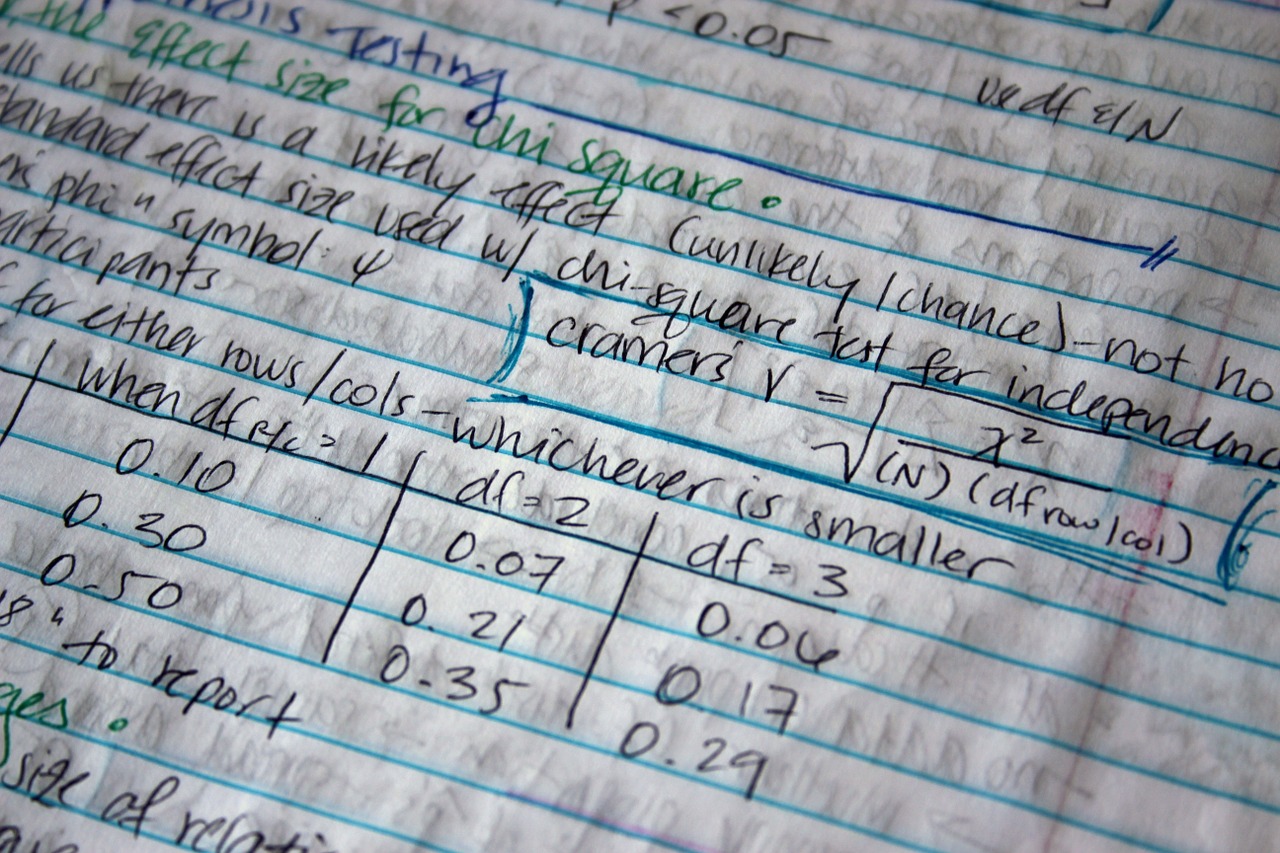 p < 0.05
Testing
the effect size for chi square.
us there is a likely effect (unlikely/chance) - not
effect size used w/ chi-square test for independenc
phi" symbol: φ
cramer's V = √ χ² / (N) (df row/col)
for either rows/cols - whichever is smaller
when df R/C = 1 | df = 2 | df = 3
0.10 | 0.07 | 0.06
0.30 | 0.21 | 0.17
0.50 | 0.35 | 0.29
" to report
size of relati